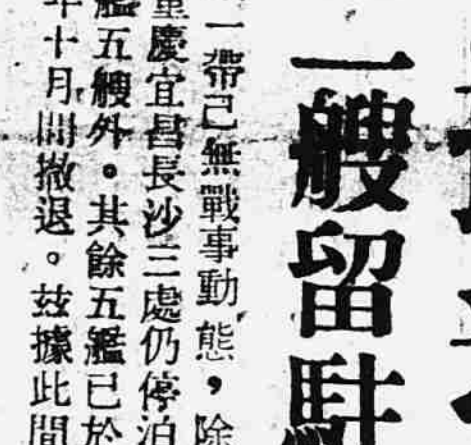 一艘留駐
一帶己無戰事動態，除
重慶宜昌長沙三處仍停泊
艦五艘外。其餘五艦已於
年十月間撤退。茲據此間